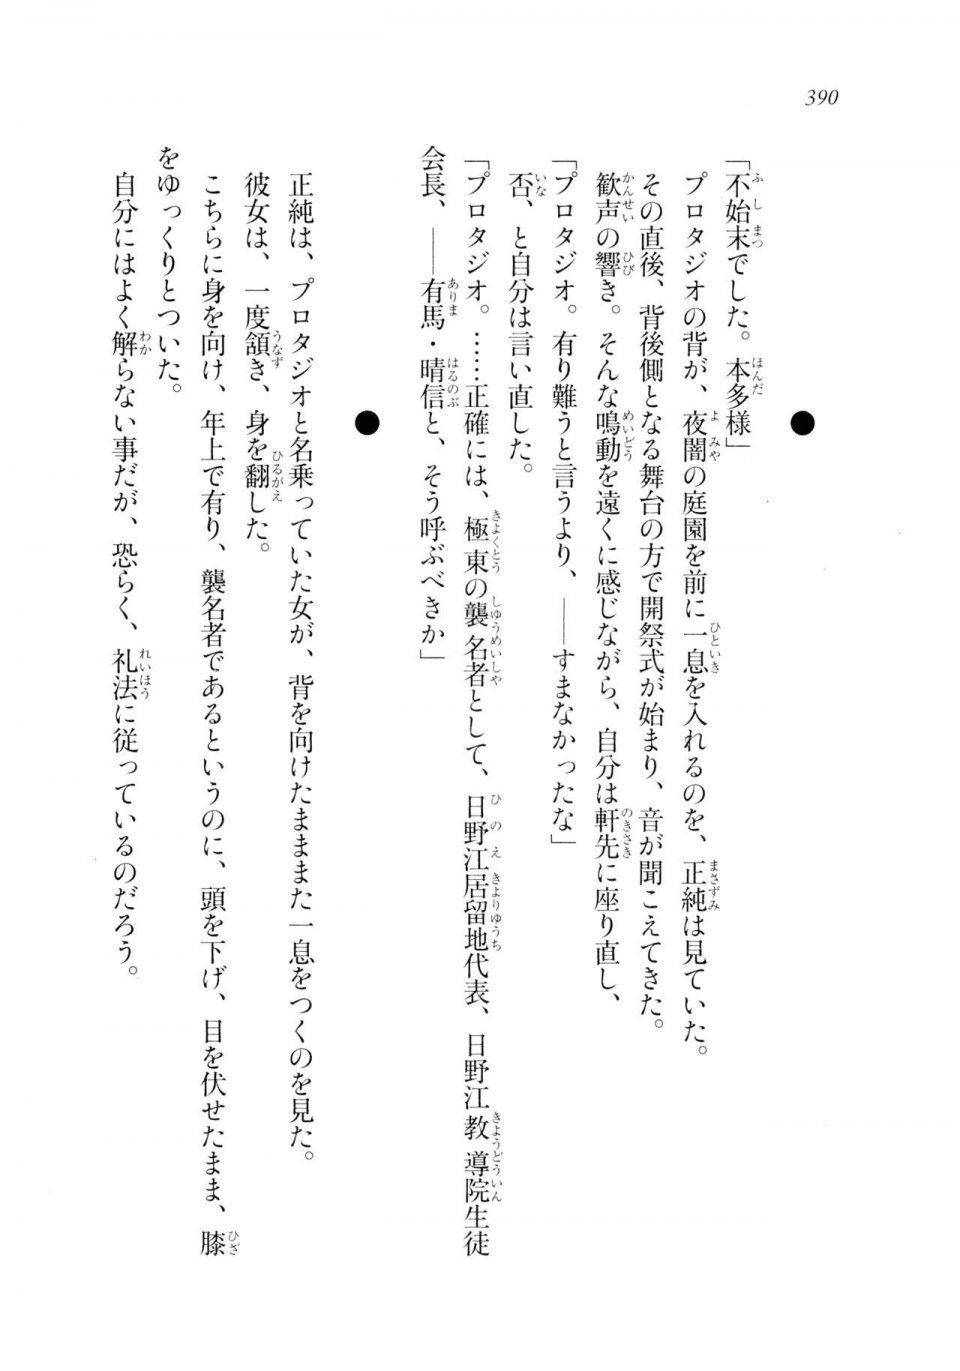 390
●
「不始末でした。本多様」
プロタジオの背が、夜闇の庭園を前に一息を入れるのを、正純は見ていた。
その直後、背後側となる舞台の方で開祭式が始まり、音が聞こえてきた。
歓声の響き。そんな鳴動を遠くに感じながら、自分は軒先に座り直し、
「プロタジオ。有り難うと言うより、――すまなかったな」
否、と自分は言い直した。
「プロタジオ。……正確には、極東の襲名者として、日野江居留地代表、日野江教導院生徒
会長、――有馬・晴信と、そう呼ぶべきか」
●
正純は、プロタジオと名乗っていた女が、背を向けたまままた一息をつくのを見た。
彼女は、一度頷き、身を翻した。
こちらに身を向け、年上で有り、襲名者であるというのに、頭を下げ、目を伏せたまま、膝
をゆっくりとついた。
自分にはよく解らない事だが、恐らく、礼法に従っているのだろう。